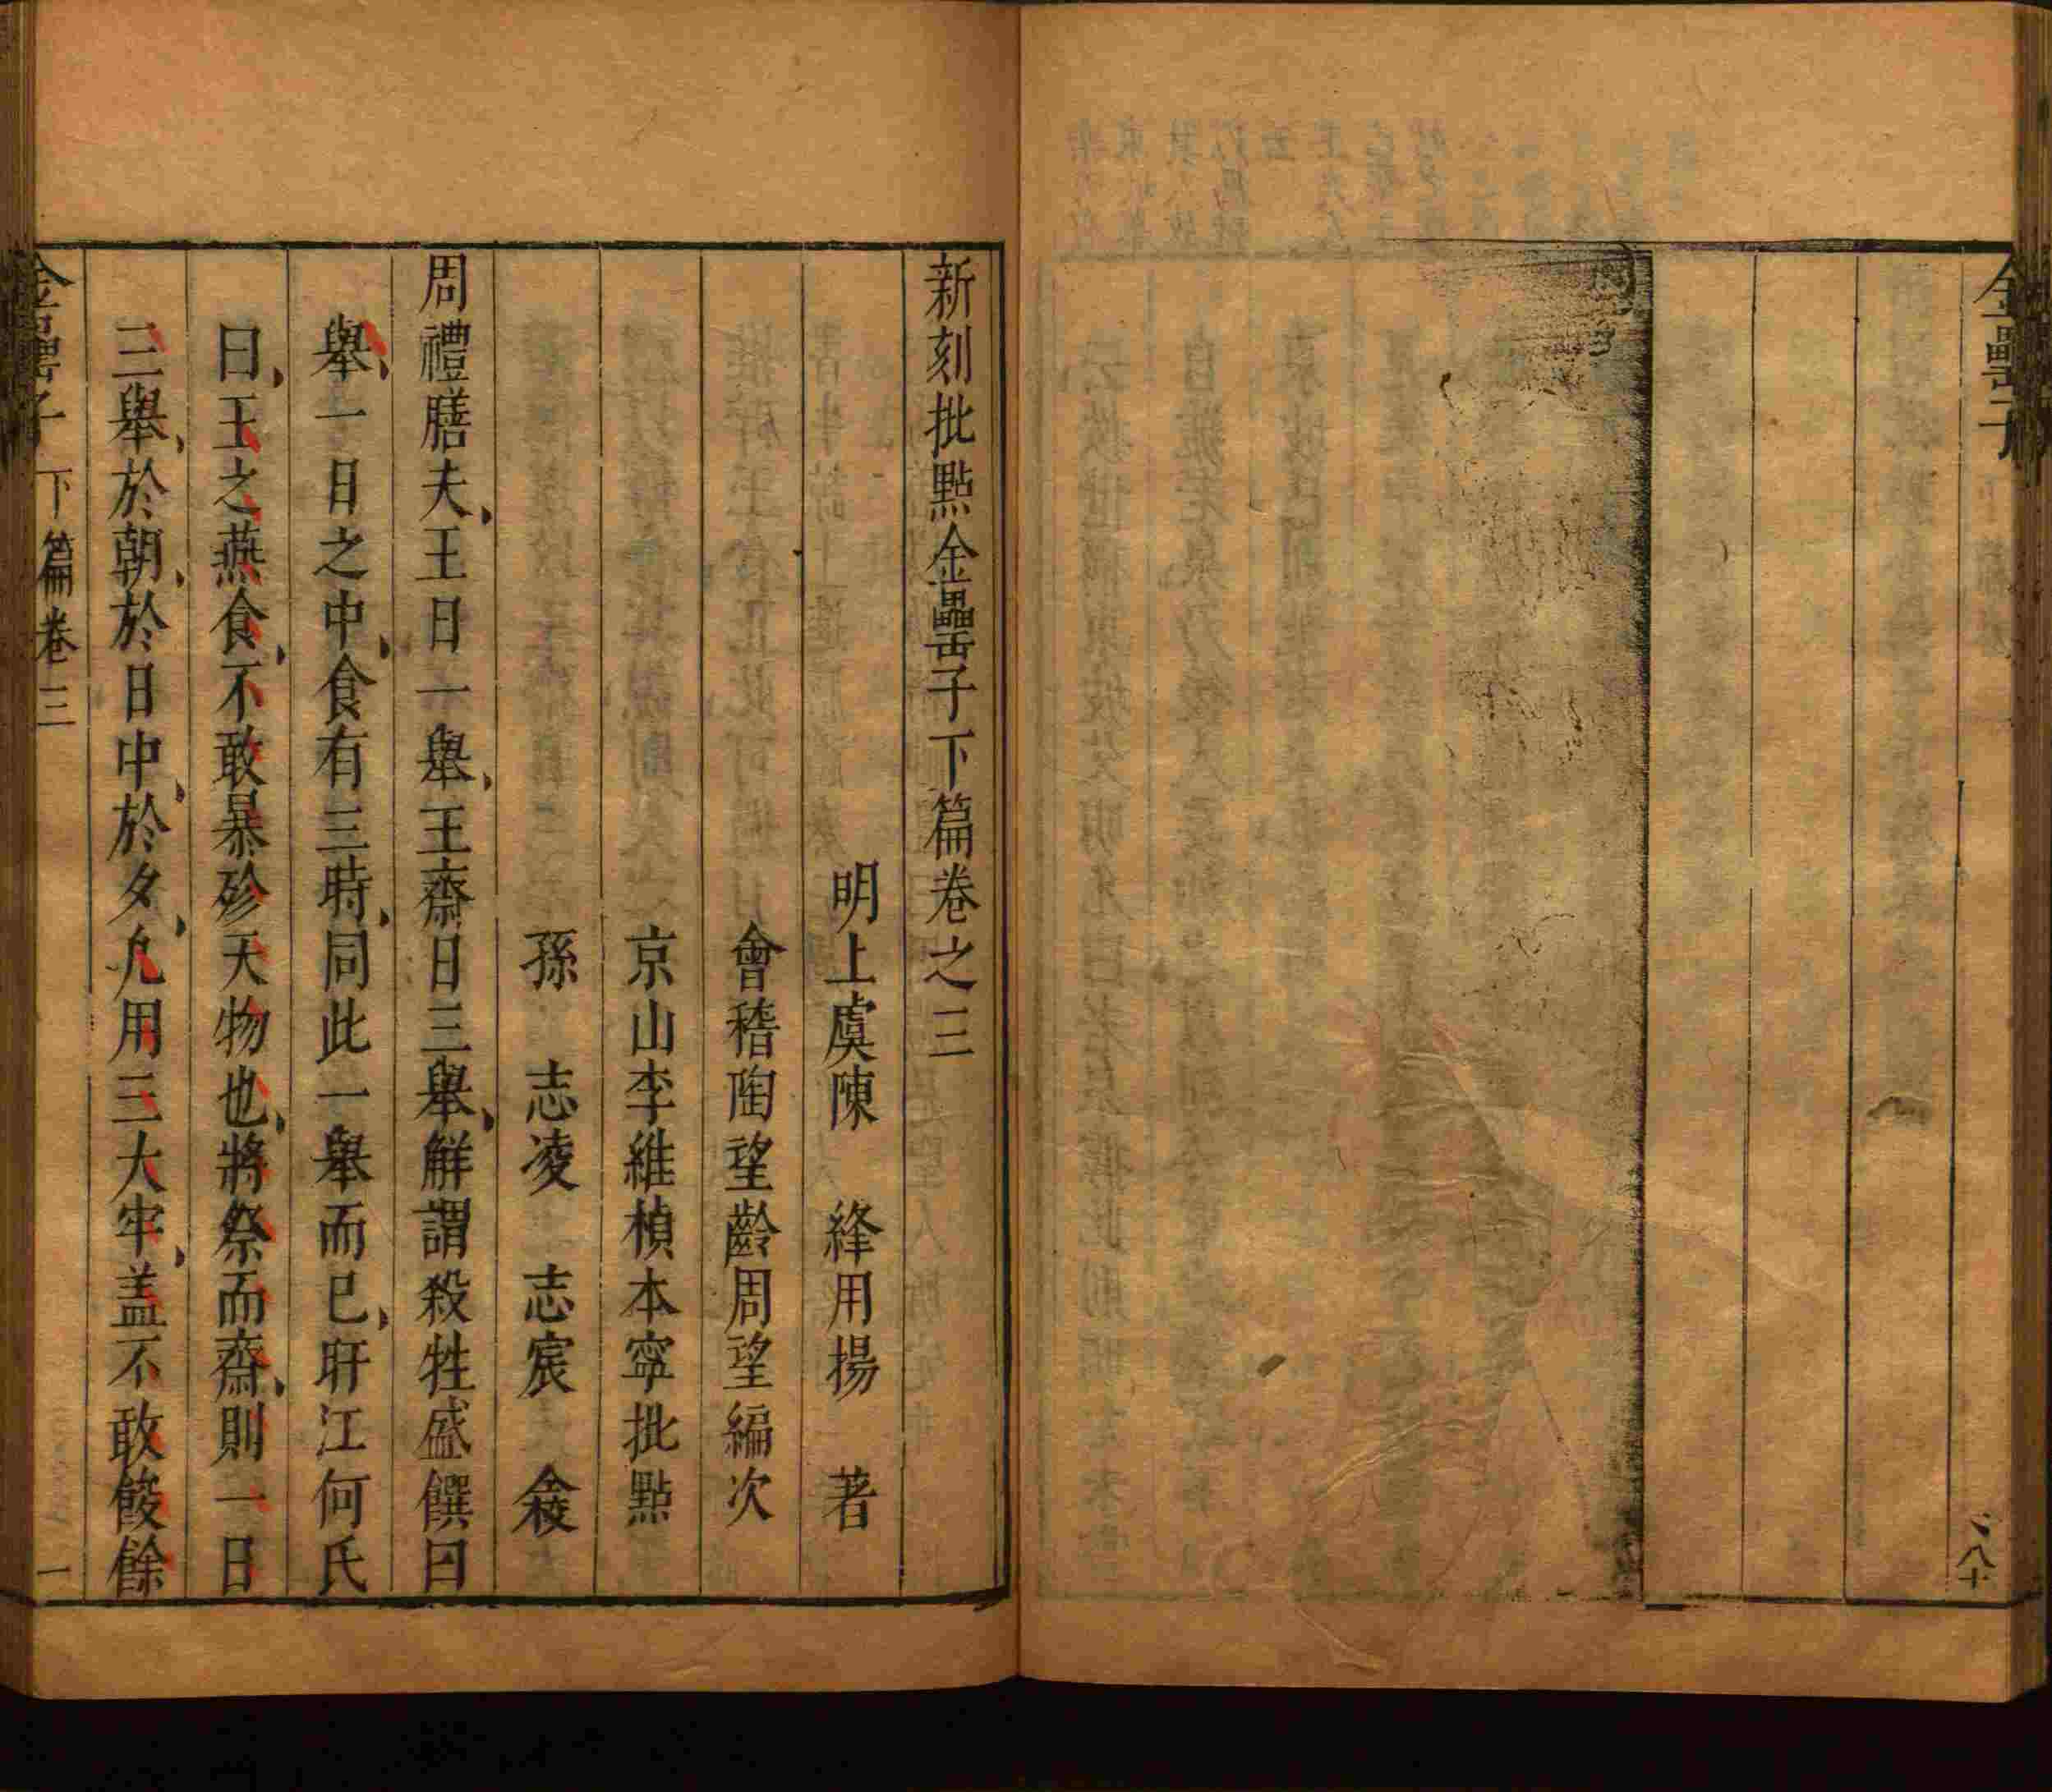 金罍子
新刻批點金罍子下篇卷之三
明上虞陳 絳用揚 著
會稽陶望齡周望編次
京山李維楨本寧批點
孫 志凌 志宸 㑹
周禮膳夫王日一舉王齋日三舉解謂殺牲盛饌曰
舉一日之中食有三時同此一舉而已盱江何氏
曰王之燕食不敢暴殄天物也將祭而齋則一日
三舉於朝於日中於夕凡用三大牢盖不敢餕餘
金罍子 下篇卷三 一